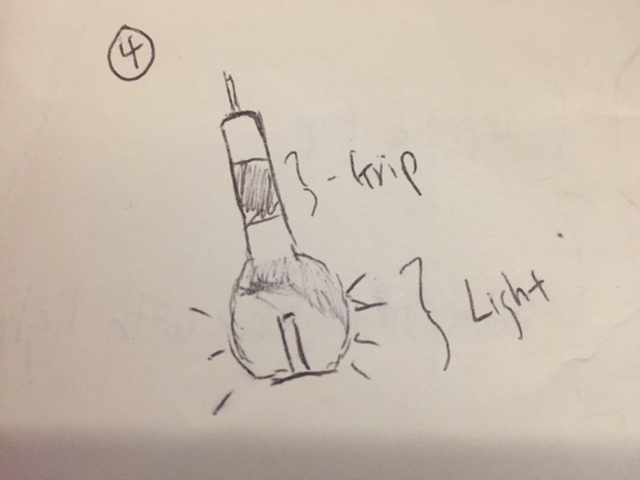 4
- Grip
Light